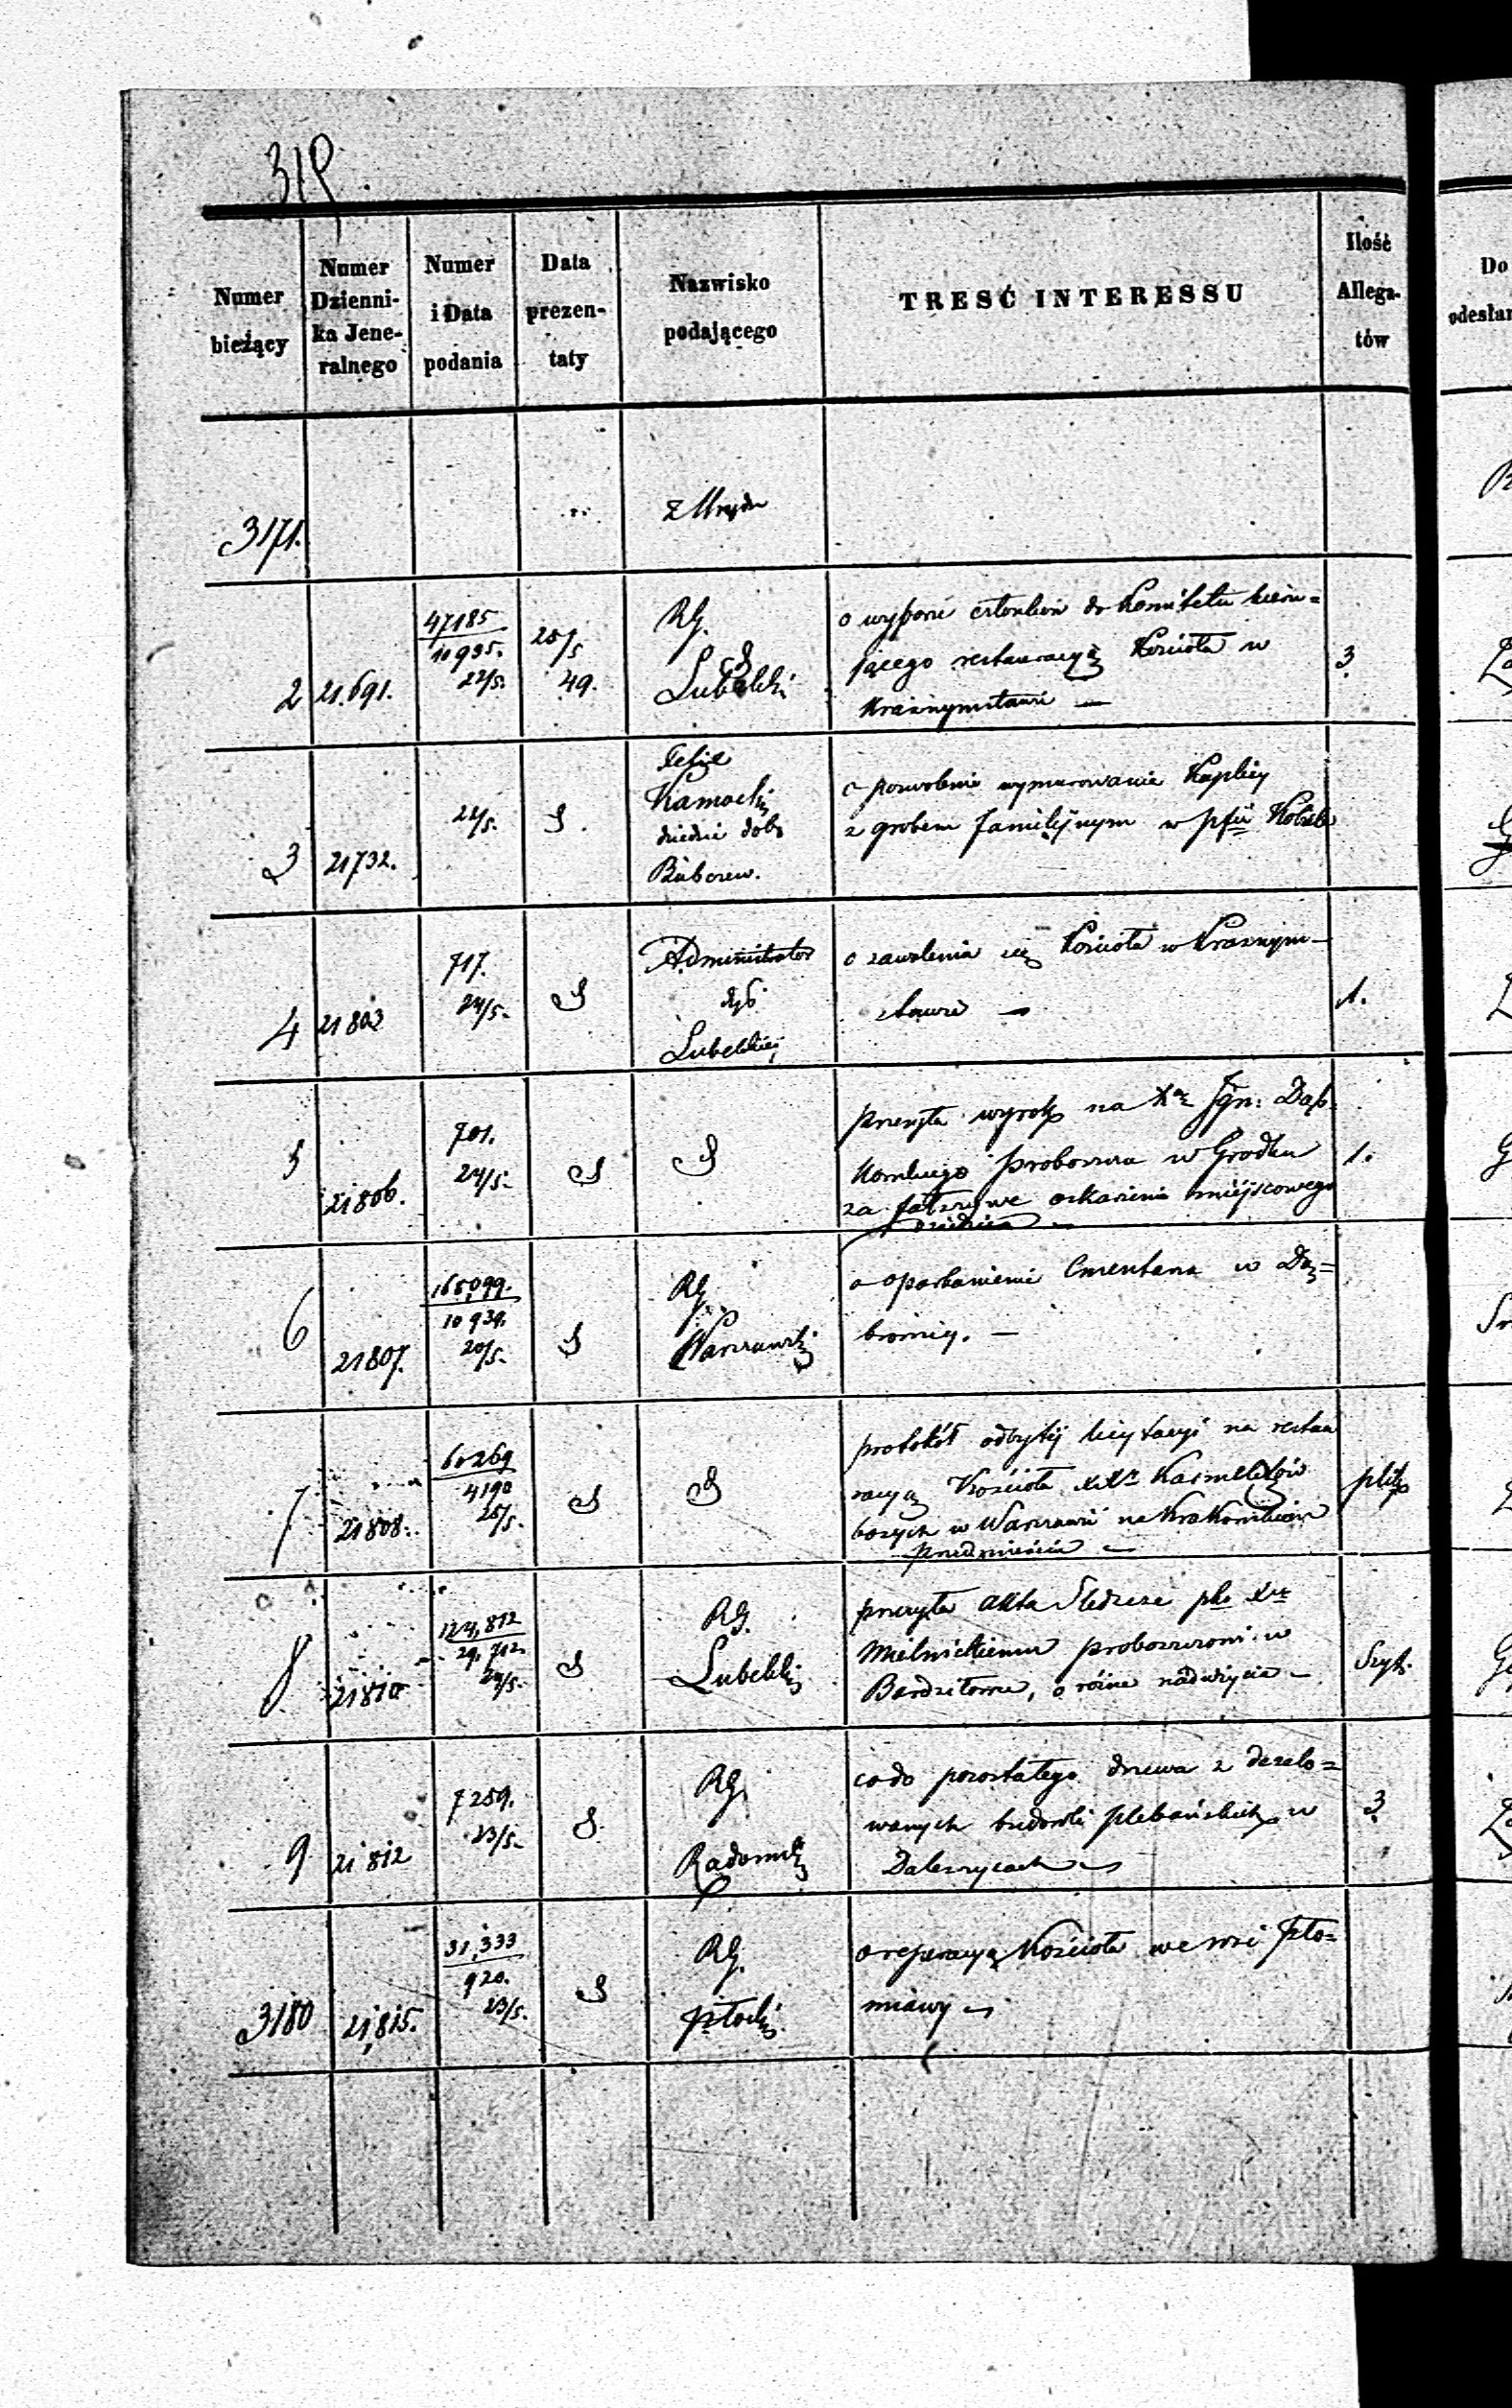 319
Numer bieżący
Numer Dzienni-ka Jene-ralnego
Numer i Data podania
Data prezen-taty
Nazwisko podającego
TRESĆ INTERESSU
Ilość Allega-tów
Do odesłan
3171.
z Urzędu
2
21.691.
47185
10935.
22/5.
25/5
49.
RG.
Lubelski
o wyborze członków do Komitetu kieru=
jącego restauracyą Kościoła w
Krasnymstawie —
3
3
21732.
22/5.
S.
Kamocki
dziedzic dóbr
o pozwolenie wymurowania Kaplicy
z grobem familijnym w pfii Kobiele
4
21803
717.
24/5.
S
Administrator
dyó
Lubelskiej
o zawalenia się Kościoła w Krasnym-
stawie —
1.
5
21806.
701.
24/5.
S
S
przesyła wyrok na Xa Ign: Dąb-
kowskiego proboszcza w Grodku
za fałszywe oskarżenie miejscowego
dziedzica —
1.
6
21807.
165,099.
10939.
20/5.
S
RG
Warszawski
o oparkanienie Cmentarza w Dą=
browicy. —
7
21808.
60269
4190
25/5.
S
S
protokół odbytej licytacyi na restau
racyą Kościoła XX Karmelitów
bosych w Warszawie na Krakowskiem
Przedmieściu —
plik
8
21810
124,812
29,712
24/5.
S
RG.
Lubelski
przesyła akta Śledcze pko Xu
Mielnickiemu proboszczowi w
o różne nadużycia —
Szyt.
9
21812
7259.
23/5.
S.
RG.
Radomski
co do pozostałego drzewa z dezelo=
wanych budowli plebańskich w
Daleszycach —
3
3180
21,815.
31,333
920.
23/5.
S
RG.
Płocki
o reparacyą Kościoła we wsi Pło=
niawy —